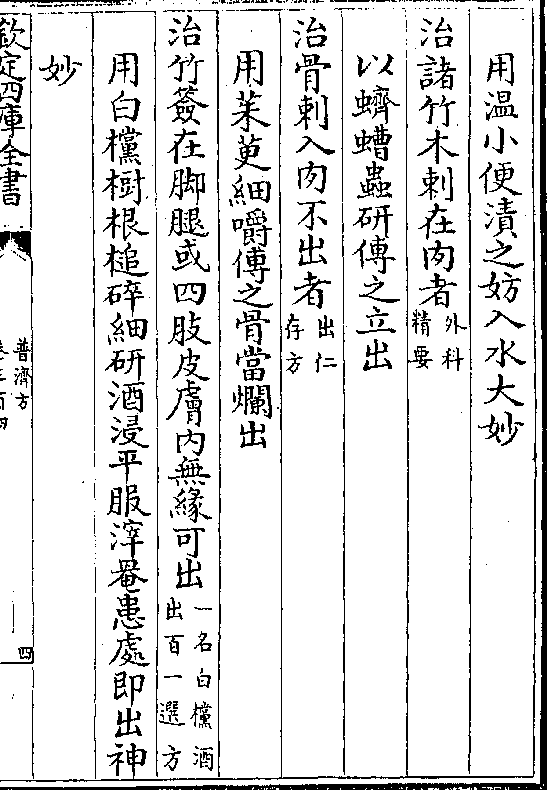 用温小便漬之妨入水大妙
治諸竹木刺在肉者外科精要
以蠐螬蟲研傅之立出
治骨刺入肉不出者出仁存方
用茱萸細嚼傅之骨當爛出
治竹簽在脚腿或四肢皮膚内無緣可出一名白欓酒出百一選方
用白欓樹根槌碎細研酒浸平服滓罨患處即出神
妙
欽定四庫全書
普濟方
卷三百四
四